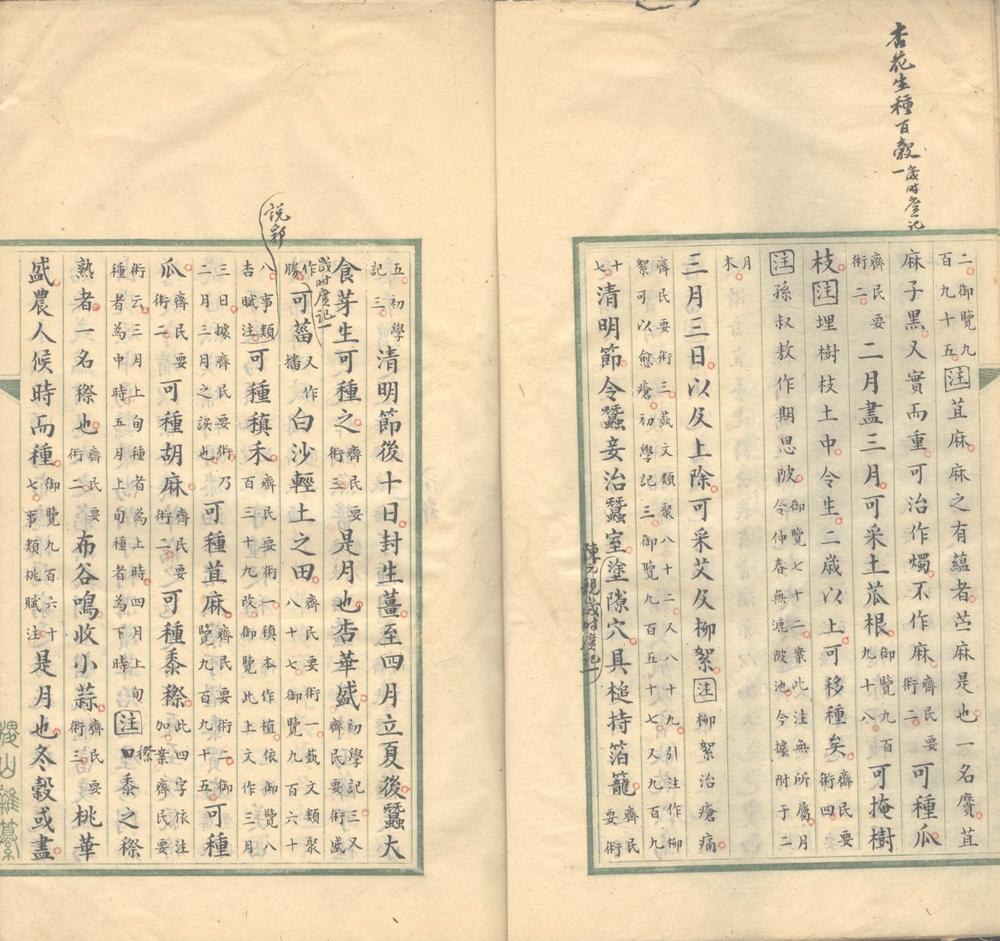 杏花生種百穀歲時廣記一
二御覽九百九十五注苴麻麻之有蘊者苎麻是也一名黂苴
麻子黑又實而重可治作燭不作麻齊民要術二可種瓜
齊民要術二二月盡三月可采土苽根御覽九百九十八可掩樹
枝注埋樹枝土中令生二歲以上可移種矣齊民要術四
注孫叔敖作期思陂御覽七十二案此注無所屬月令仲春無漉陂池今據附于二
月末
三月三日以及上除可采艾及柳絮注柳絮治瘡痛
齊民要術三蓺文類聚八十二又八十九引注作柳絮可以愈瘡初學記三御覽九百五十七又九百九
十七清明節令蠶妾治蠶室塗隙穴具槌持箔籠齊民要術
陳元靚歲時廣記一
五初學記三清明節後十日封生薑至四月立夏後蠶大
食芽生可種之齊民要術三是月也杏華盛初學記三又齊民要術盛
歲時廣記一
作勝可菑又作播白沙輕土之田齊民要術一蓺文類聚八十七御覽九百六十
說郛
八事類吉賦注可種稹禾齊民要術一稹本作植依御覽八百三十九改御覽此上文作三月
三日據齊民要術乃二月三月之誤也可種苴麻齊民要術二御覽九百九十五可種
瓜齊民要術二可種胡麻齊民要術二可種黍穄此四字依注加案齊民要
術云三月上旬種者為上時四月上旬種者為中時五月上旬種者為下時注黍之穄
穄
熟者一名穄也齊民要術二布谷鳴收小蒜齊民要術三桃華
盛農人候時而種御覽九百六十七事類桃賦注是月也冬穀或盡